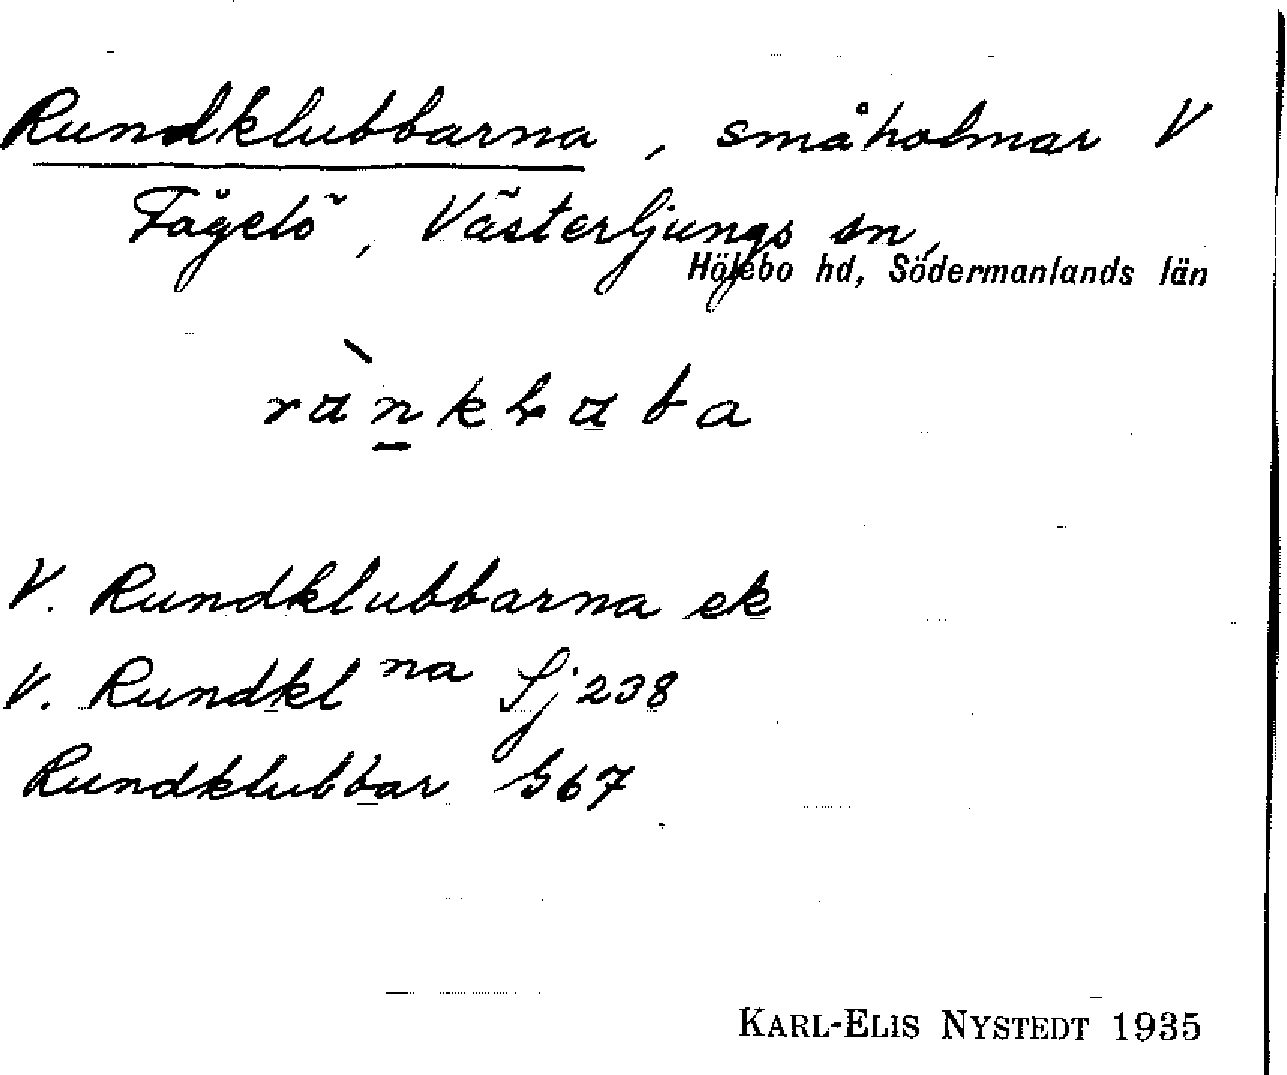 Rundklubbarna, småholmar V
Fågelö, Västerljungs sn,
Hölebo hd, Södermanlands län
V. Rundklubbarna ek
V. Rundkl na Sj 238
Rundklubbar G 67
KARL-ELIS NYSTEDT 1935